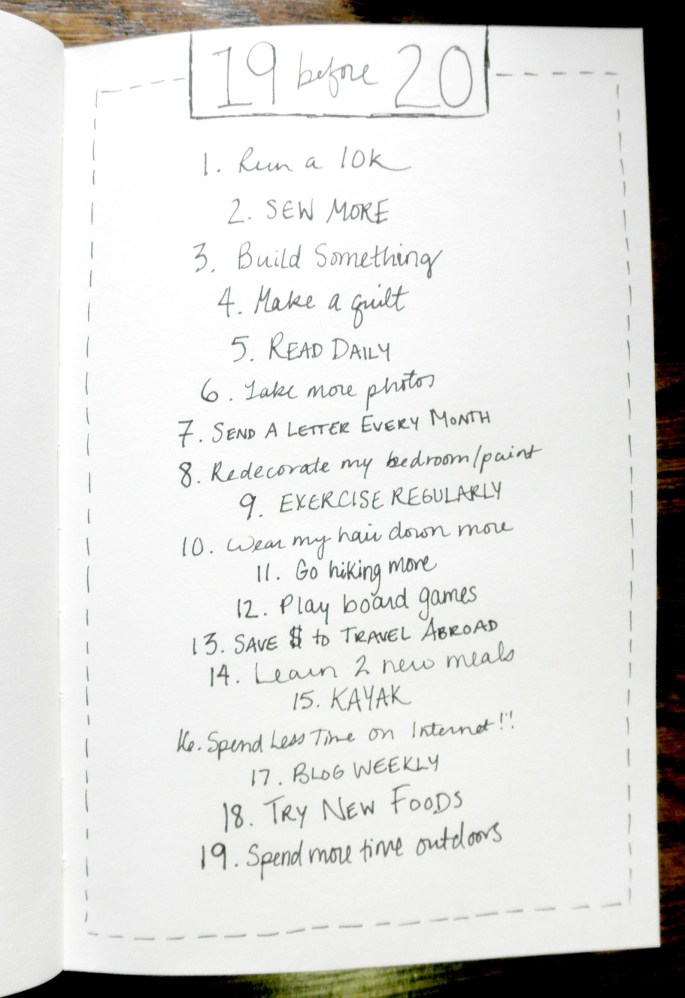 19 before 20
1. Run a 10k
2. SEW MORE
3. Build Something
4. Make a quilt
5. READ DAILY
6. Take more photos
7. SEND A LETTER EVERY MONTH
8. Redecorate my bedroom/paint
9. EXERCISE REGULARLY
10. Wear my hair down more
11. Go hiking more
12. Play board games
13. SAVE $ to TRAVEL ABROAD
14. Learn 2 new meals
15. KAYAK
16. Spend Less Time on Internet!!
17. BLOG WEEKLY
18. TRY NEW FOODS
19. Spend more time outdoors